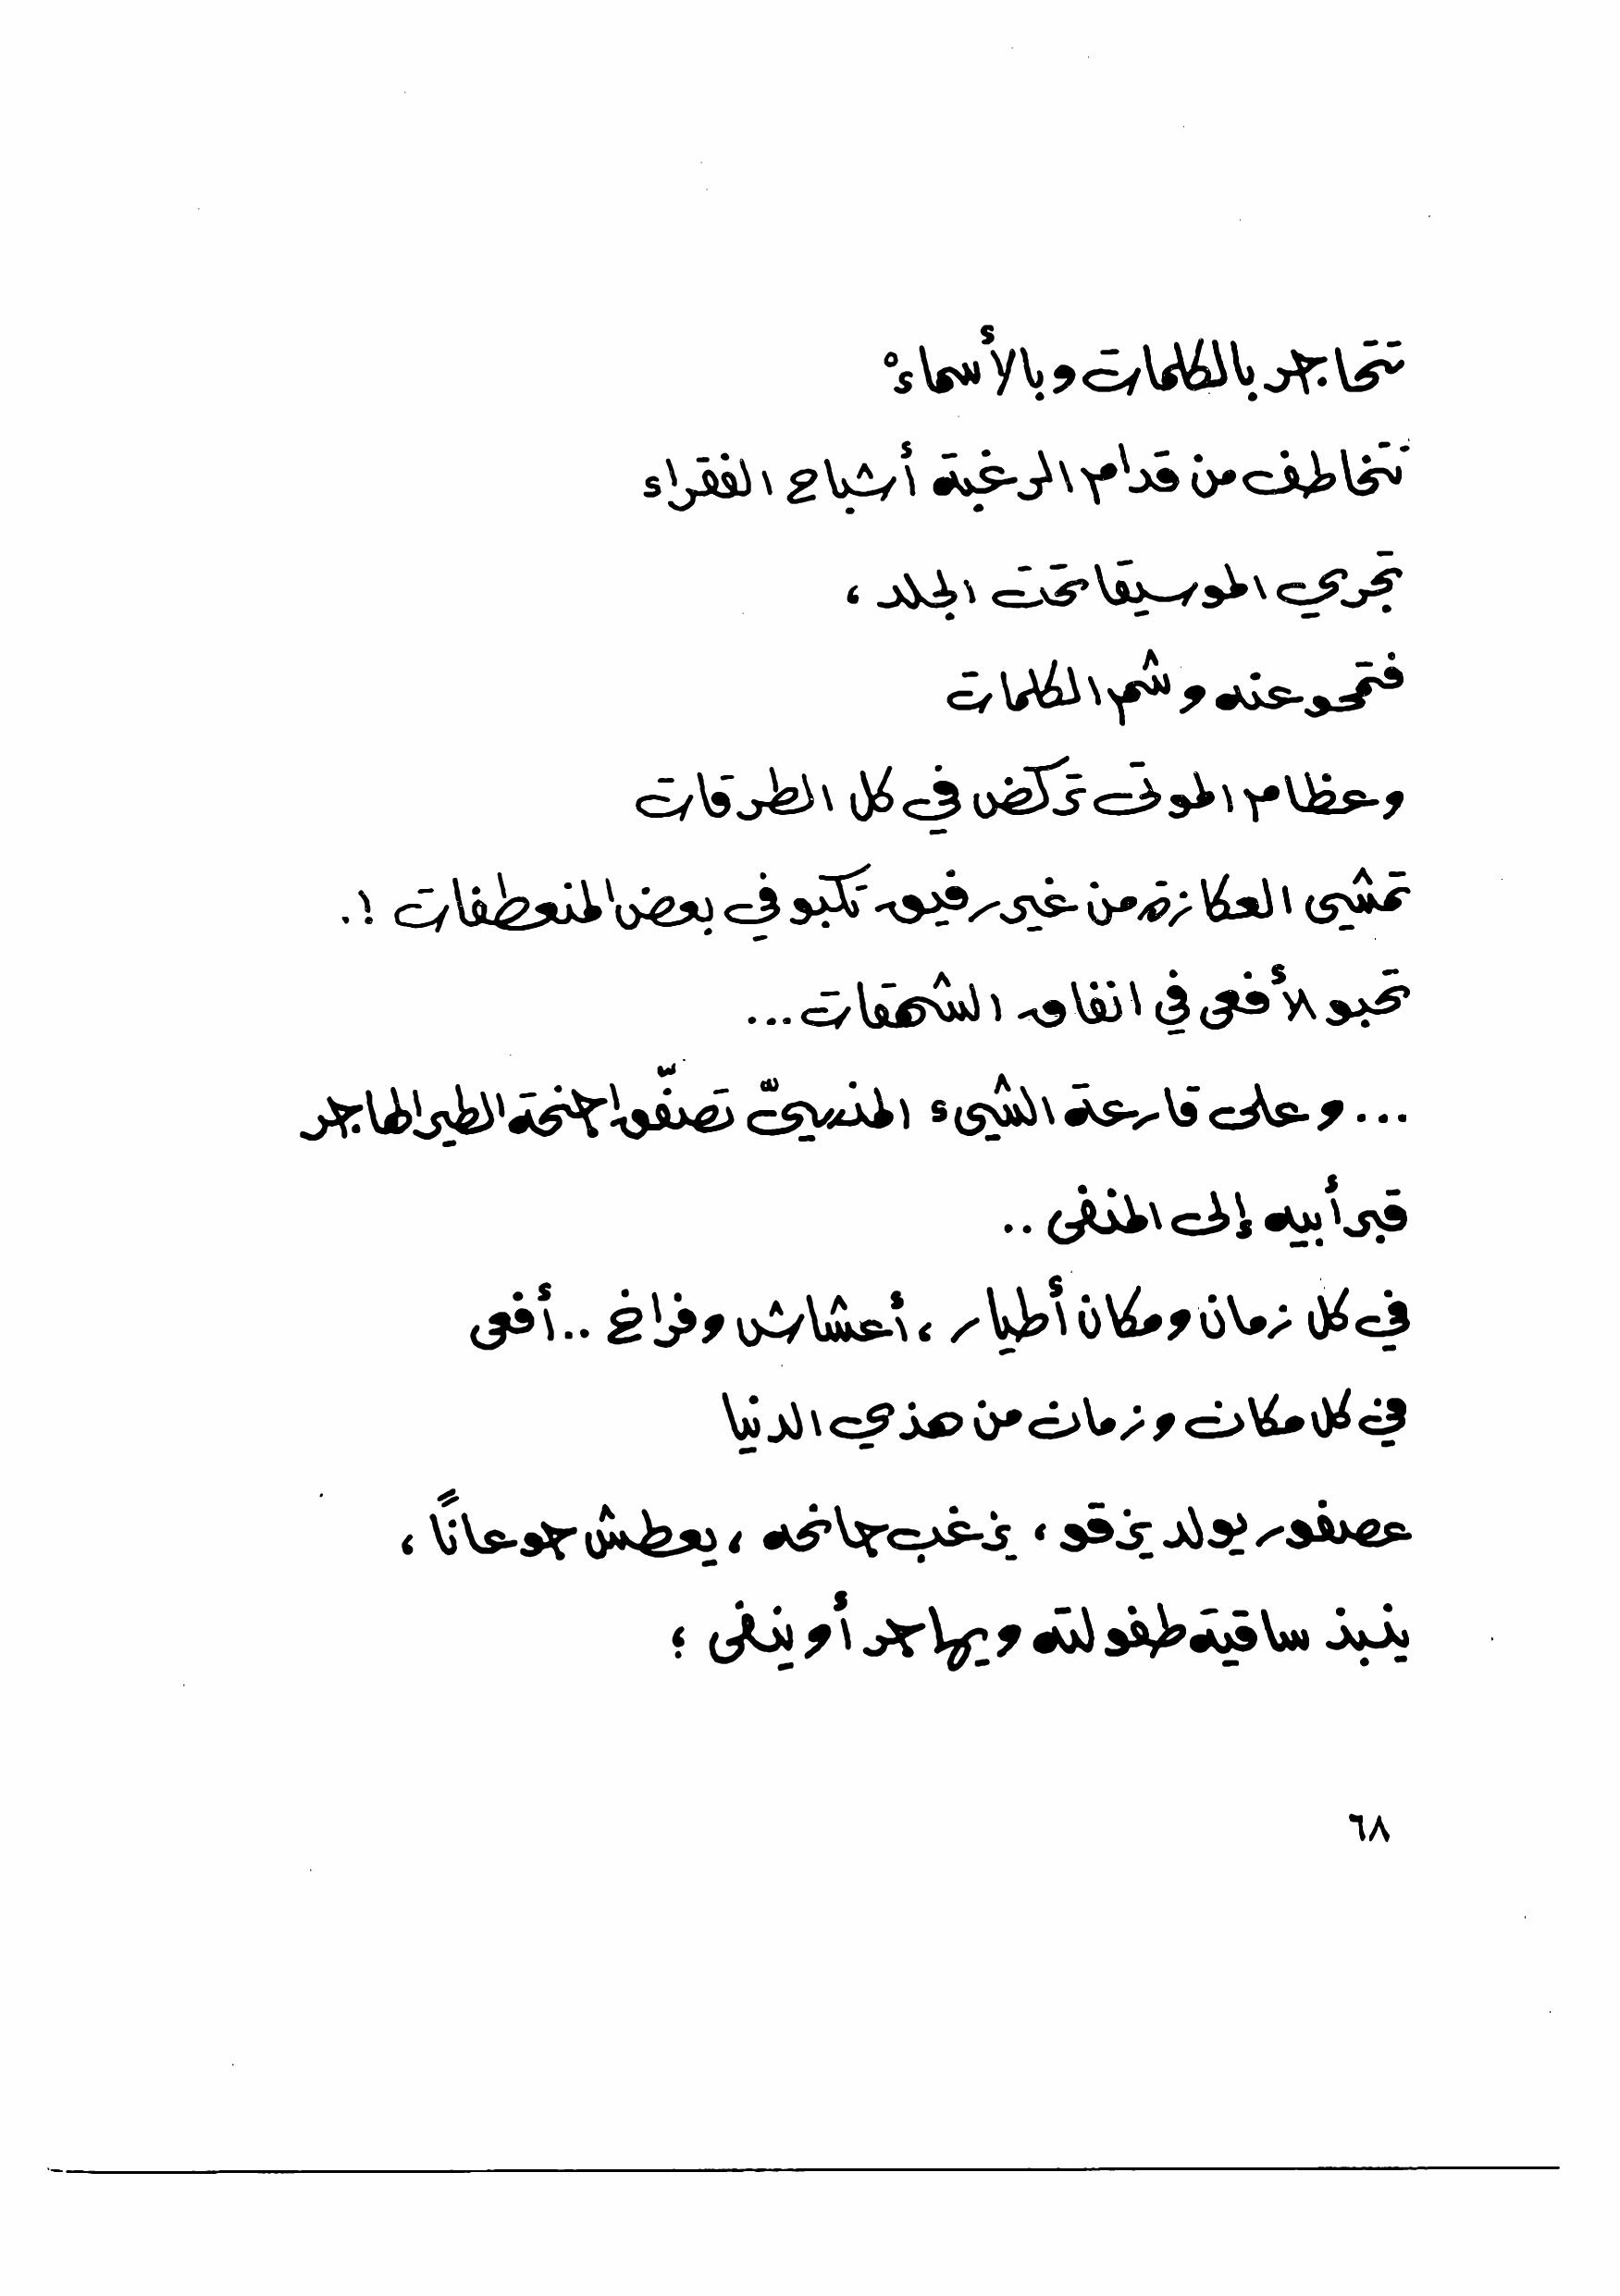 تتحاجر بالكلمات وبالأسماءْ
تتخاطف من قدام الرغبة أشباح الفقراء
تجري الموسيقا تحت الجلد ،
فتمحو عنه وشم الكلمات
وعظام الموتى تركض في كل الطرقات
تمشي العكازة من غير رفيق تكبو في بعض المنعطفات !.
تحبو الأفعى في انفاق الشهقات...
... وعلى قارعة الشيء المنسيّ تصفّق اجنحة الطير المهاجر
قبر أبيه إلى المنفى ..
في كل زمان ومكان أطيار ، أعشاش وفراخ .. أفعى
في كل مكان وزمان من هذي الدنيا
عصفور يولد يزقو ، يزغب جانحه ، يعطش جوعاناً ،
ينبذ ساقية طفولته ويهاجر أو ينفى ؛
٦٨